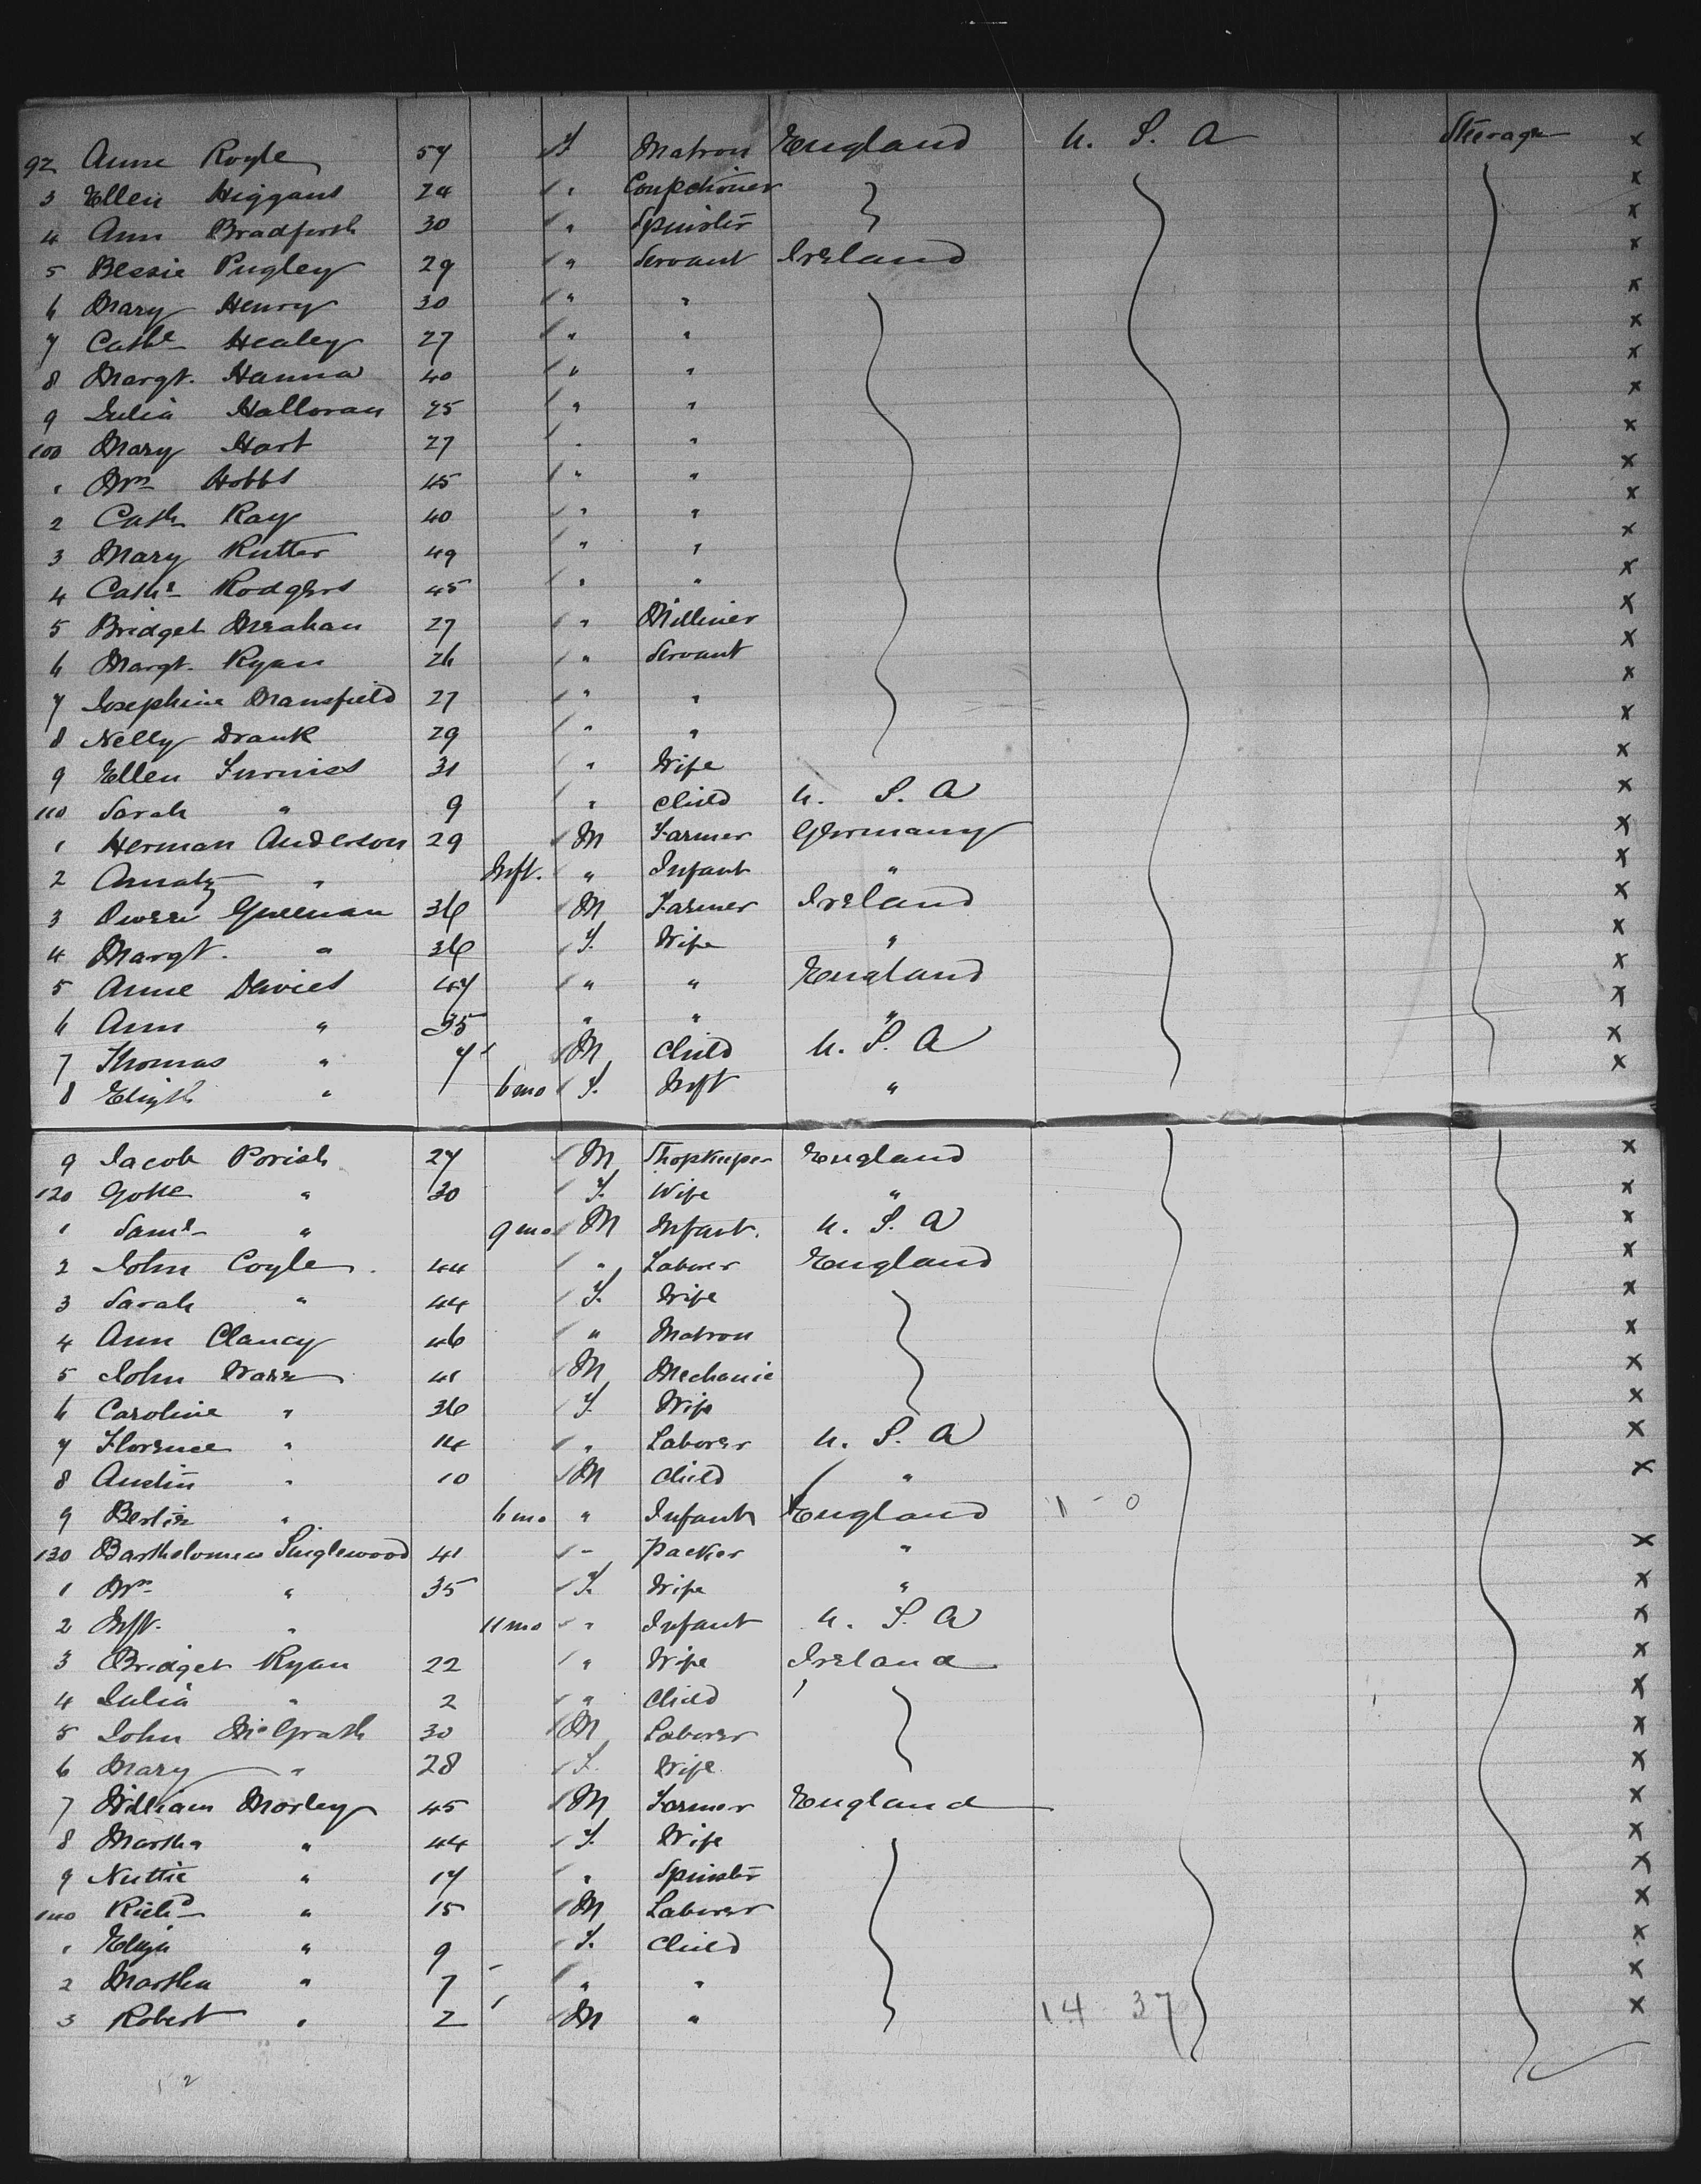 92 Anne Royle 57 F Matron England U. S. A Steerage x
3 Ellen Higgans 24 " Confectioner x
4 Ann Bradforth 30 " Spinster x
5 Bessie Pugley 29 " Servant Ireland x
6 Mary Henry 30 " " x
7 Cathe Healey 27 " " x
8 Margt. Hanna 40 " " x
9 Julia Halloran 25 " " x
100 Mary Hart 27 " " x
1 Mrs Hobbs 45 " " x
2 Cath Ray 40 " " x
3 Mary Rutter 49 " " x
4 Cathe Rodgers 45 " " x
5 Bridget Meahan 27 " Milliner x
6 Margt. Ryan 26 " Servant x
7 Josephine Mansfield 27 " " x
8 Nelly Drank 29 " " x
9 Ellen Furniss 31 " Wife x
110 Sarah " 9 " Child U. S. A x
1 Herman Anderson 29 M Farmer Germany x
2 " Inft. " Infant " x
3 Owen Greenan 36 M Farmer Ireland x
4 Margt. " 36 F. Wife " x
5 Anne Davies 47 " " England x
6 Ann " 35 " " " x
7 Thomas " 7 M Child U. S. A x
8 Elizth " 6 mo F. Inft " x
9 Jacob Porish 27 M Shopkeeper England x
120 " 30 F. Wife " x
1 Saml " 9 mo M Infant. U. S. A x
2 John Coyle 44 " Laborer England x
3 Sarah " 44 F. Wife x
4 Ann Clancy 46 " Matron x
5 John 41 M Mechanic x
6 Caroline " 36 F. Wife x
7 Florence " 14 " Laborer U. S. A x
8 Austin " 10 M Child " x
9 " 6 mo " Infant England 1 - 0
130 Bartholomew Singlewood 41 " Packer " x
1 Mrs " 35 F. Wife " x
2 Inft. " 11 mo " Infant U. S. A x
3 Bridget Ryan 22 " Wife Ireland x
4 Julia " 2 " Child x
5 John McGrath 30 M Laborer x
6 Mary " 28 F. Wife x
7 William Morley 45 M Farmer England x
8 Martha " 44 F. Wife x
9 Nettie " 17 " Spinster x
140 Richd " 15 M Laborer x
1 Eliza " 9 F. Child x
2 Martha " 7 " " x
3 Robert " 2 M " 14 37 x